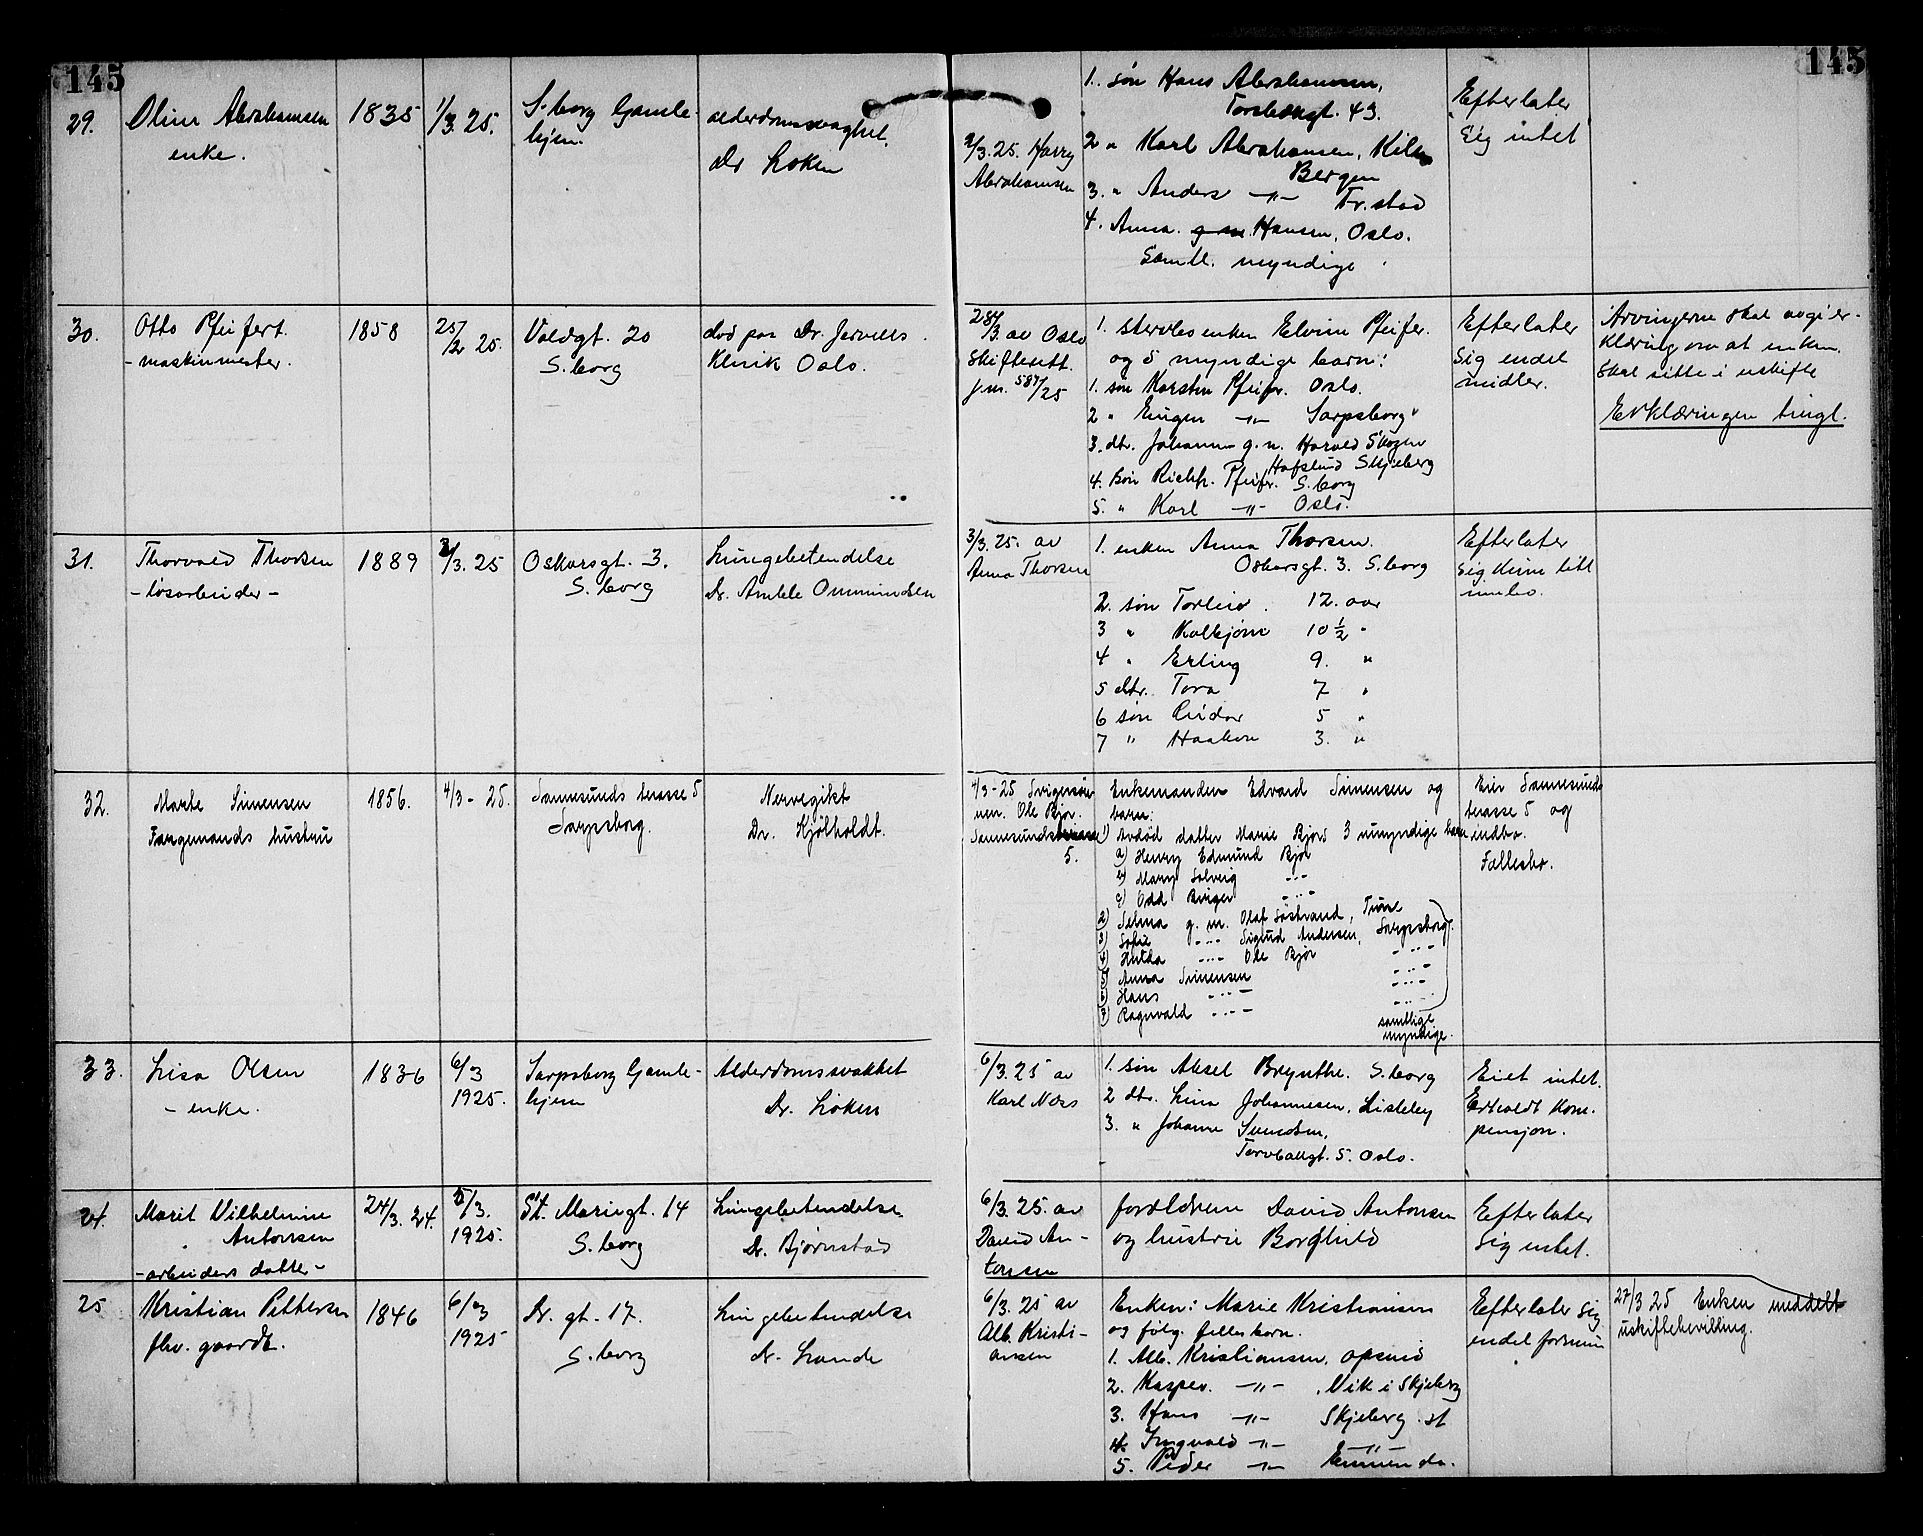 145
145
29.
Oline Abrahamsen
enke.
1835
1/3. 25.
S.borg Gamle-
hjem.
alderdomssvaghet.
Dr Løken
2/3. 25. Harry
Abrahamsen
1. søn Hans Abrahamsen,
43.
2 " Karl Abrahamsen,
Bergen
3. " Anders -"- Fr.stad
4. Anna g.m. Hansen, Oslo.
Samtl. myndige
Efterlater
sig intet
30.
Otto Pfeifert
- maskinmester.
1858
25/2 25.
Voldgt. 20
S.borg
død paa Dr. Jervells
Klinik Oslo.
28/3. av Oslo
Skifterett.
j.nr. 587/25
1. enken Elvine Pfeifer.
og 5 myndige barn:
1. søn Karsten Pfeifer. Oslo.
2 " Eugen -"- Sarpsborg"
3. dtr. Johanne g.m. Harald Skogen
Hafslund Skjeberg
4. søn Richh. Pfeifer. S.borg
5. " Karl -"- Oslo.
Efterlater
sig endel
midler.
Arvingerne skal avgi er-
klæring om at enken
skal sitte i uskifte
Erklæringen tingl.
31.
Thorvald Thorsen
- løsarbeider -
1889
2/3. 25
Oskarsgt. 3.
S.borg
Lungebetendelse
Dr. Amble Ommundsen
3/3. 25. av
Anna Thorsen
1. enken Anna Thorsen.
Oskarsgt. 3. S.borg
2. søn Torleiv. 12. aar
3 " Kolbjørn 10 1/2 "
4 " Erling 9. "
5 dtr. Tora 7 "
6 søn Reidar 5 "
7 " Haakon 3. "
Efterlater
sig kun litt
innbo.
32.
Marte Simensen
Tangemands hustru
1856.
4/3 - 25.
Sannesunds terasse 5
Sarpsborg.
Nervegikt
Dr. Kjølholdt.
4/3 - 25 Svigersøn-
nen. Ole Bjør.
Sannesundsterasse
5.
Enkemanden Edvard Simensen og
barn:
1) Avdød datter Marie Bjørs 3 umyndige barn
a) Henry Edmund Bjør
b) Mary Solveig -"-
c) Odd Birger -"-
2) Selma g.m. Olaf Søstrand, Tune
3) Sofie -"- Sigurd Andersen, Sarpsborg.
4) Hulda -"- Ole Bjør -"-
5) Anna Simensen -"-
6) Hans -"- -"-
7) Ragnvald -"- -"-
samtlige
myndige.
Eier Sannesunds
terasse 5 og
indbo.
Fællesbo.
33.
Lisa Olsen
- enke.
1836
6/3
1925.
Sarpsborg Gamle-
hjem
Alderdomssvakhet
Dr. Løken
6/3. 25 av
Karl Næs
1. søn Aksel Brynthe. S.borg
2 dtr. Lina Johannesen, Lisleby
3. " Johanne Svendsen,
5. Oslo.
Eiet intet.
Erholdt kom.
pensjon.
24.
Marit Vilhelmine
Antonsen
- arbeiders datter -
24/3. 24.
5/3.
1925.
St. Mariegt. 14
S.borg
Lungebetendelse
Dr. Bjørnstad
6/3. 25. av
David An-
tonsen
forældrene David Antonsen
og hustru Borghild
Efterlater
sig intet.
25
Kristian Pettersen
fhv. gaardb.
1846
6/3
1925
Dr. gt. 17.
S.borg
Lungebetendelse
dr. Lande
6/3. 25 av
Alb. Kristi-
ansen
Enken: Marie Kristiansen
og følg. felles barn.
1. Alb. Kristiansen, Opsund
2. Kasper. -"- , Vik i Skjeberg
3. Hans -"- Skjeberg st
4. Ingvald -"- -"-
5. Peder -"- do.
Efterlater sig
endel formue
27/3 25 Enken meddelt
uskiftebevilling.